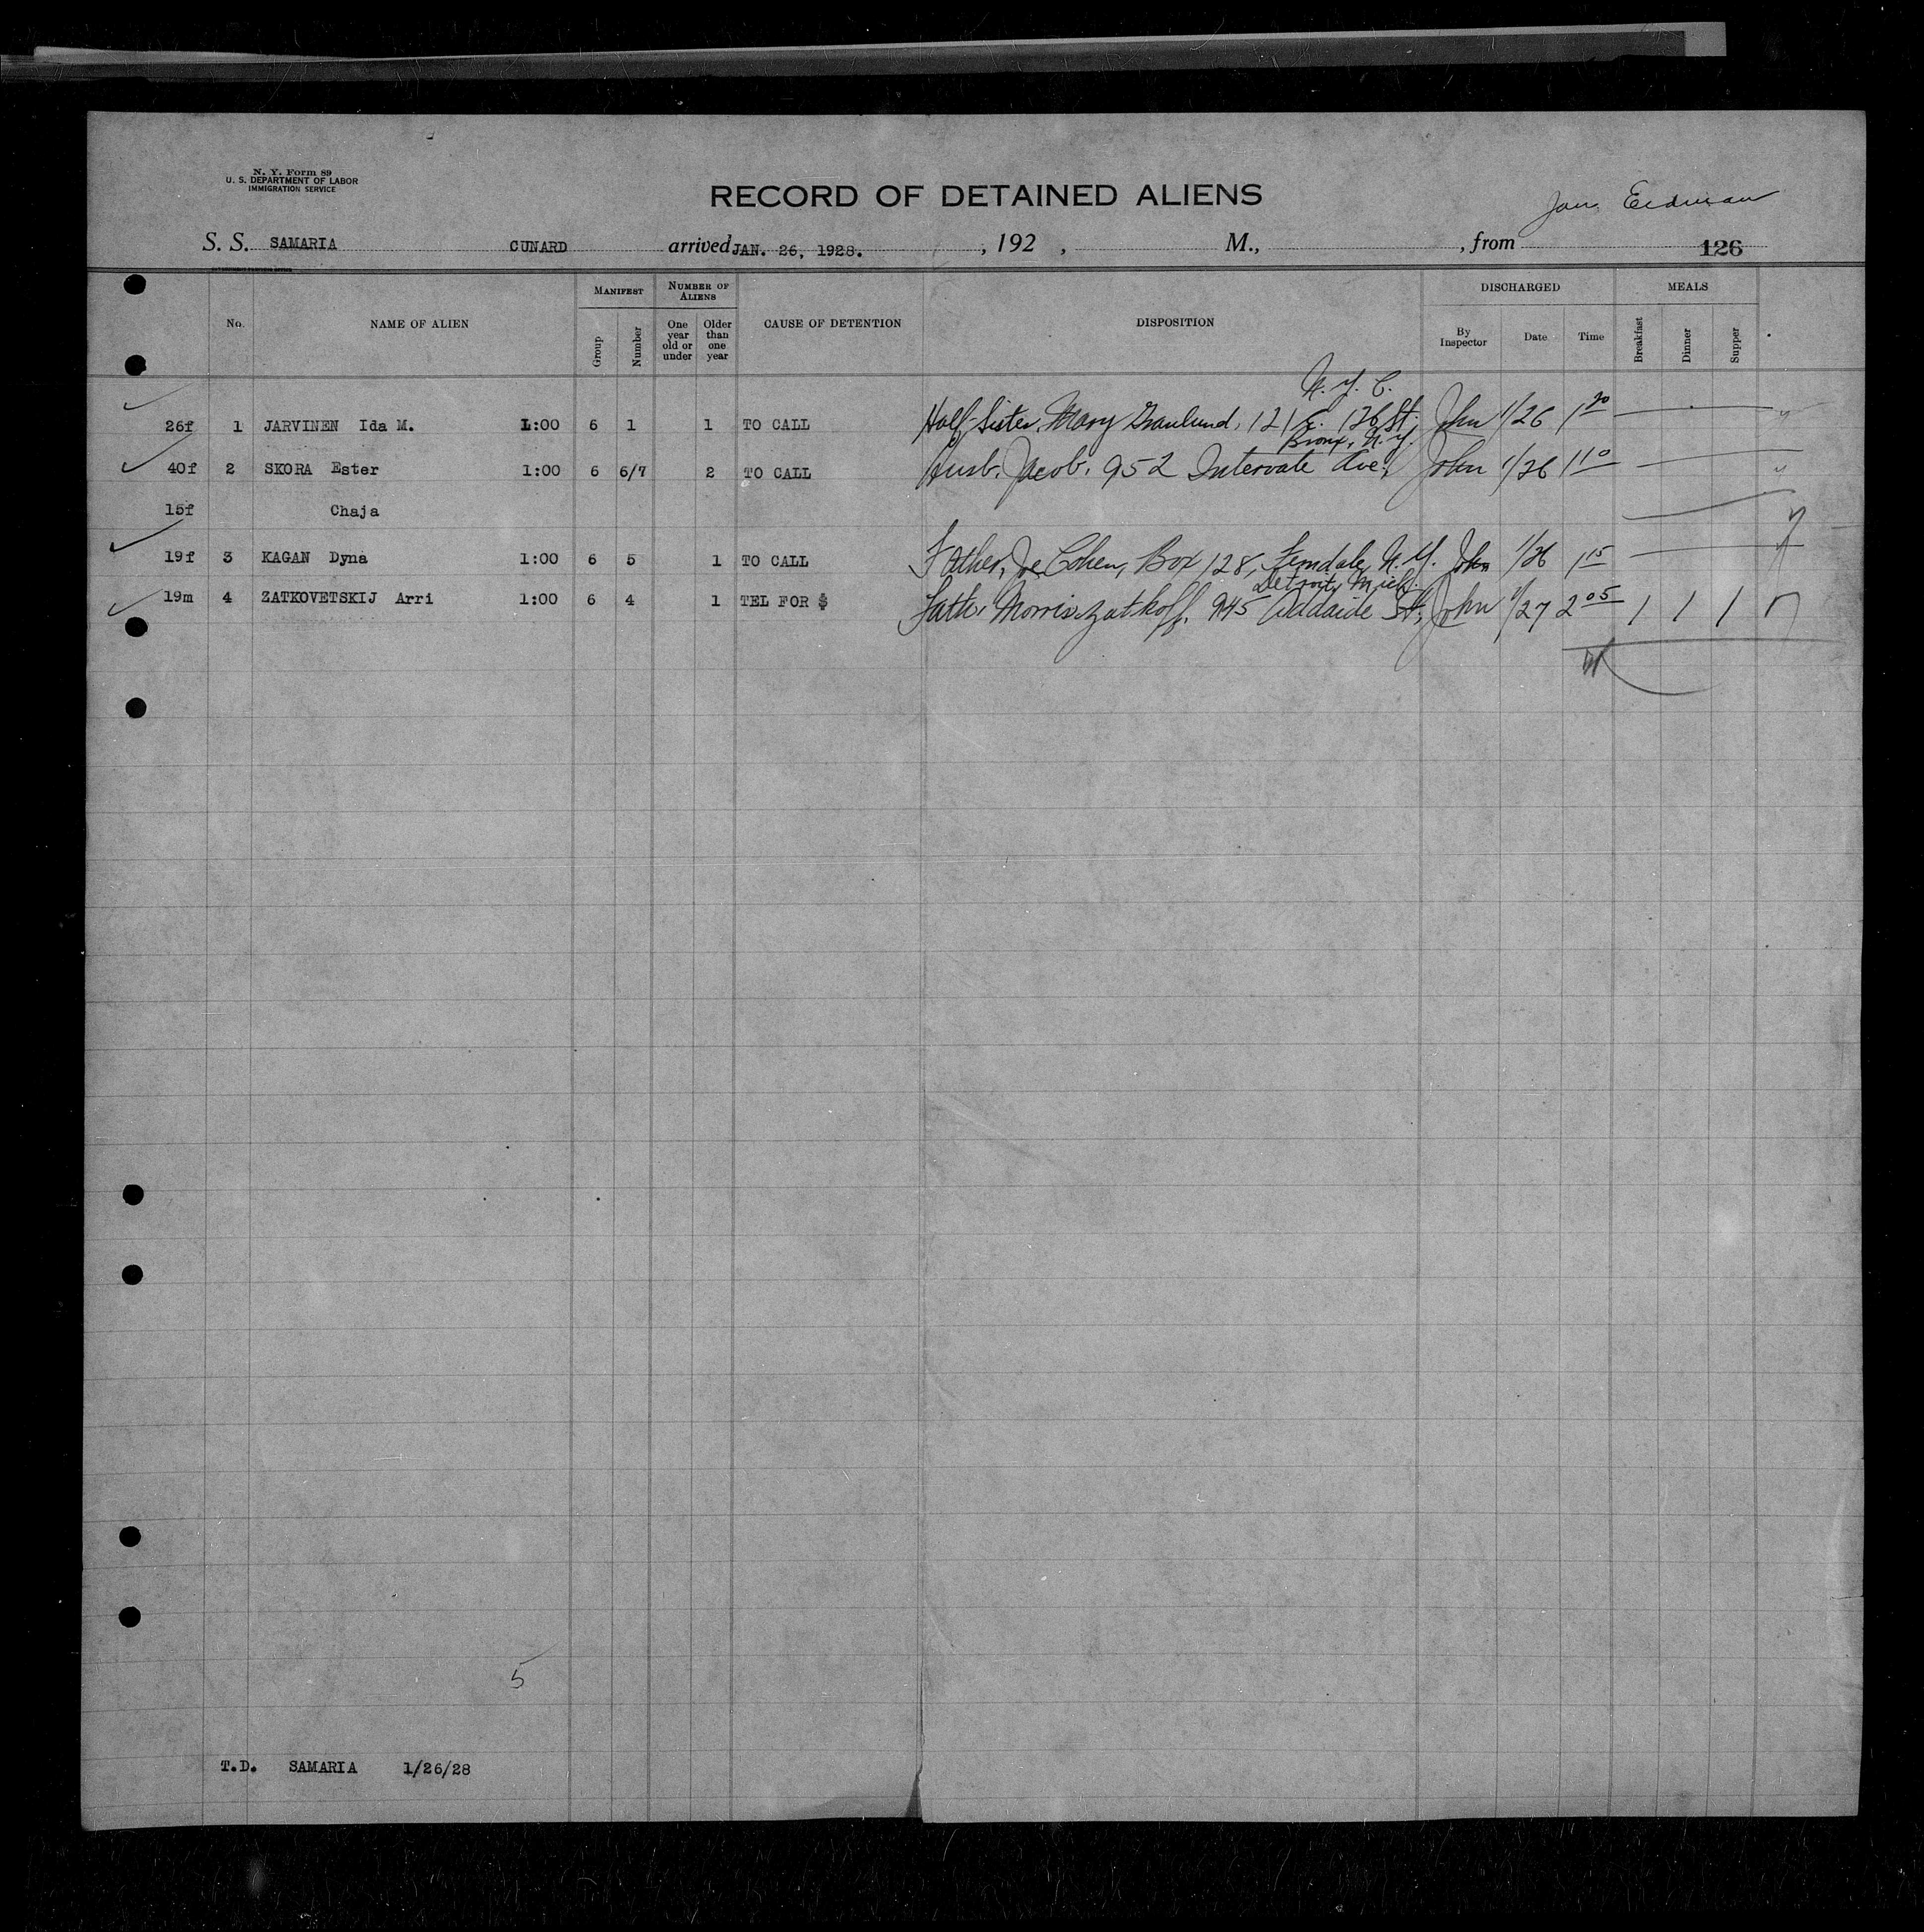 N. Y. Form 89
U. S. DEPARTMENT OF LABOR
IMMIGRATION SERVICE
RECORD OF DETAINED ALIENS
S. S. SAMARIA CUNARD arrived JAN. 26, 1928. , 192 , M., , from 126
MANIFEST NUMBER OF ALIENS DISCHARGED MEALS
No. NAME OF ALIEN Group Number One year old or under Older than one year CAUSE OF DETENTION DISPOSITION By Inspector Date Time Breakfast Dinner Supper
N. Y. C.
26f 1 JARVINEN Ida M. 1:00 6 1 1 TO CALL Half-Sister, Mary Granlund, 121 E. 126 St. John 1/26 1 20
Bronx, N.Y.
40f 2 SKORA Ester 1:00 6 6/7 2 TO CALL Husb. Jacob, 952 Intervale Ave, John 1/26 1 10
15f Chaja
19f 3 KAGAN Dyna 1:00 6 5 1 TO CALL Father, Joe Cohen, Box 128, Ferndale, N.Y. John 1/26 1 15
Detroit, Mich.
19m 4 ZATKOVETSKIJ Arri 1:00 6 4 1 TEL FOR $ Father Morris Zatkoff, 945 Addaide St, John 1/27 2 05 / / /
5
T.D. SAMARIA 1/26/28